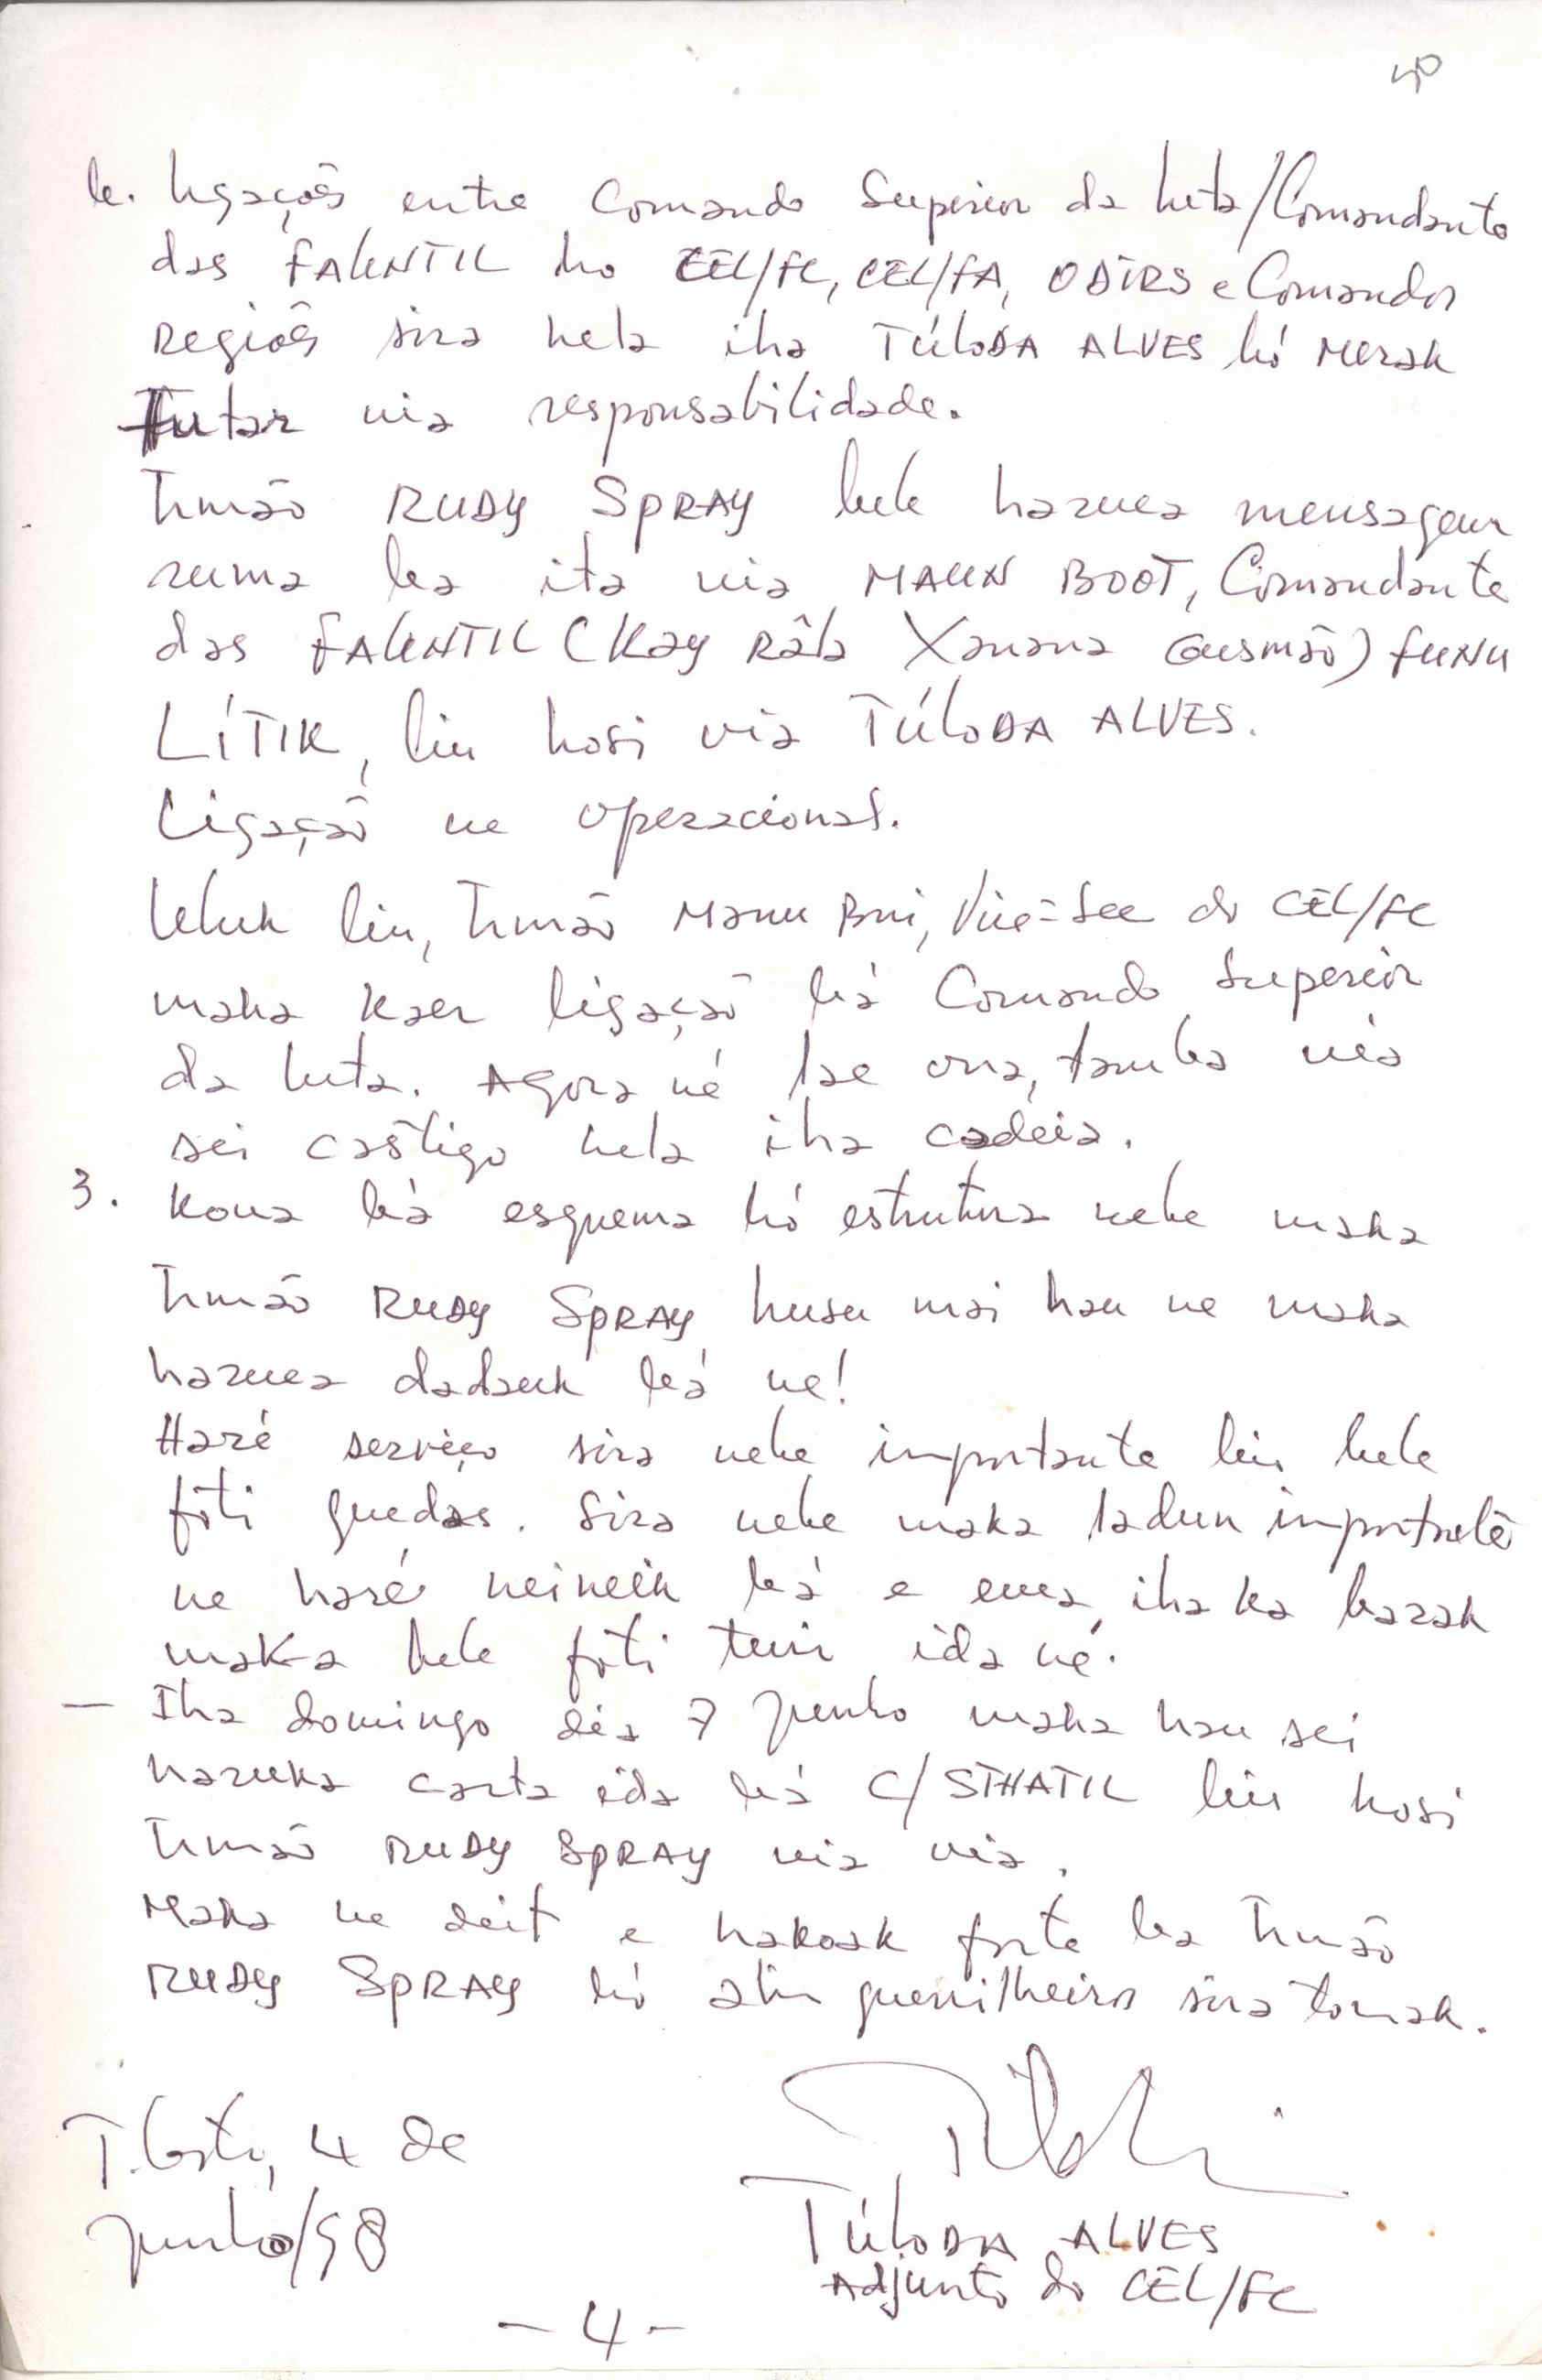 40
b. ligações entre Comando Superior da luta/Comandante
das FALINTIL ho CEL/FC, CEL/FA, ODIRS e Comandos
Regiões sira hela iha TÚLODA ALVES hó Merak
Futar nia responsabilidade.
Irmão RUDY SPRAY bele haruca mensagem
ruma ba ita nia MAUN BOOT, Comandante
das FALINTIL (Kay Râla Xanana Gusmão) FUNU
LÍTIK, liu hosi via TÚLODA ALVES.
Ligação ne operacional.
Uluk liu, Irmão Manu Bui, Vice-Sec do CEL/FC
maka kaer ligação bá Comando Superior
da luta. Agora né lae ona, tamba nia
sei castigo hela iha cadeia.
3. Kona bá esquema hó estrutura nebe maka
Irmão RUDY SPRAY husu mai hau ne maka
haruca dadauk bá ne!
Haré serviço sira nebe importante liu bele
foti guedas. Sira nebe maka ladun importante
ne haré neineik bá e ema iha ka barak
maka bele foti tuir ida né.
— Iha domingo dia 7 Junho maka hau sei
haruka carta ida bá C/STHATIL liu hosi
Irmão RUDY SPRAY nia via.
Maka ne deit e hakoak forte ba Irmão
RUDY SPRAY hó alin guerrilheiros sira tomak.
T. Leste, 4 de
Junho/98
TÚLODA ALVES
Adjunto do CEL/FC
- 4 -